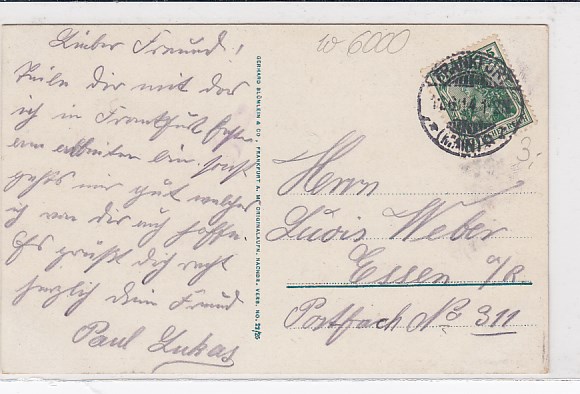 Lieber Freund!
Teile dir mit das
ich in Frankfurt
am arbeiten bin. sonst
gehts mir gut welches
ich von dir auch hoffe.
Es grüßt dich recht
herzlich dein Freund
Paul Lukas
GERHARD BLÜMLEIN & CO., FRANKFURT A. M. ORIGINALAUFN. NACHDR. VERB. NO. 22/25
W 6000
FRANKFURT
(MAIN)
3,-
Herrn
Luois Weber
Essen a/R.
Postfach No 311